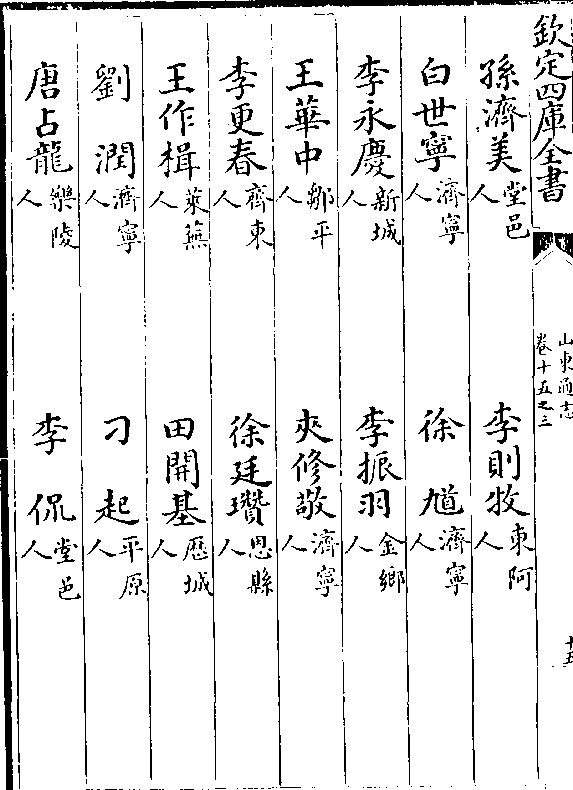 欽定四庫全書
山東通志
卷十五之三
十五
孫濟美堂邑人
李則牧東阿人
白世寧濟寧人
徐馗濟寧人
李永慶新城人
李振羽金鄉人
王華中鄒平人
夾修敬濟寧人
李更春齊東人
徐廷瓚恩縣人
王作楫萊蕪人
田開基歴城人
劉潤濟寧人
刁起平原人
唐占龍樂陵人
李侃堂邑人